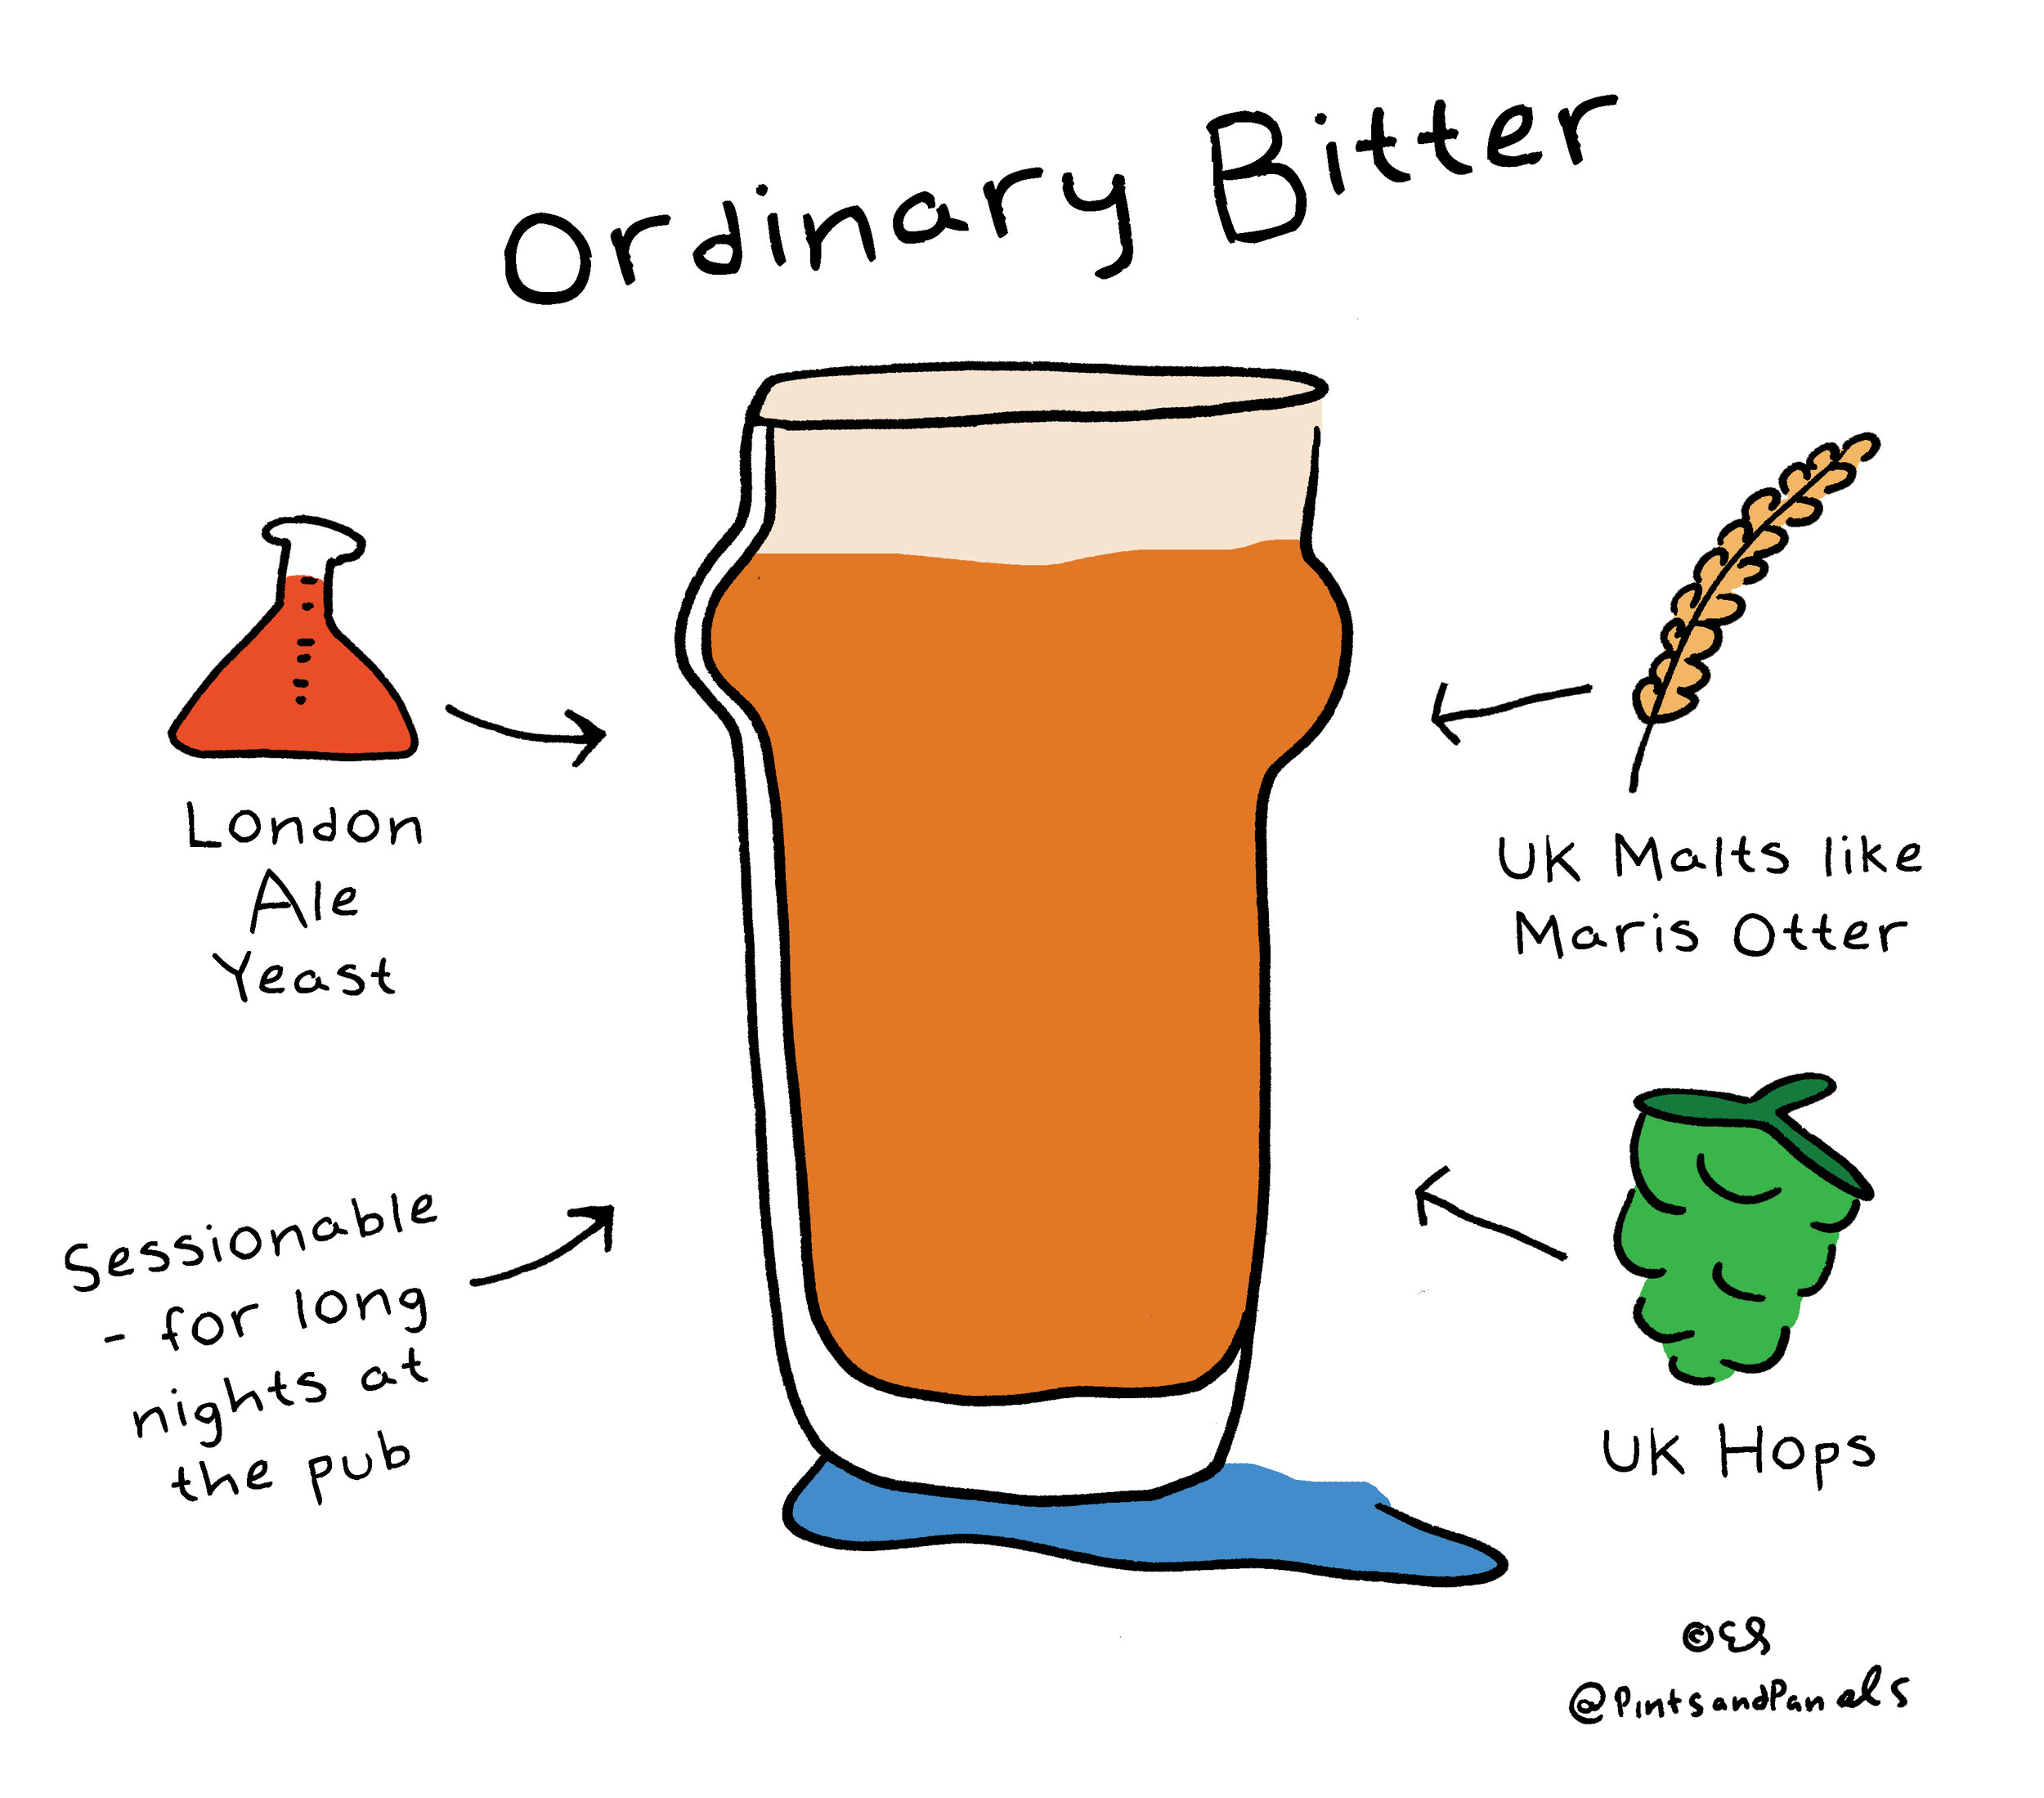 Ordinary Bitter
London
Ale
Yeast
UK Malts like
Maris Otter
Sessionable
- for long
nights at
the pub
UK Hops
©ES
@PintsandPanels